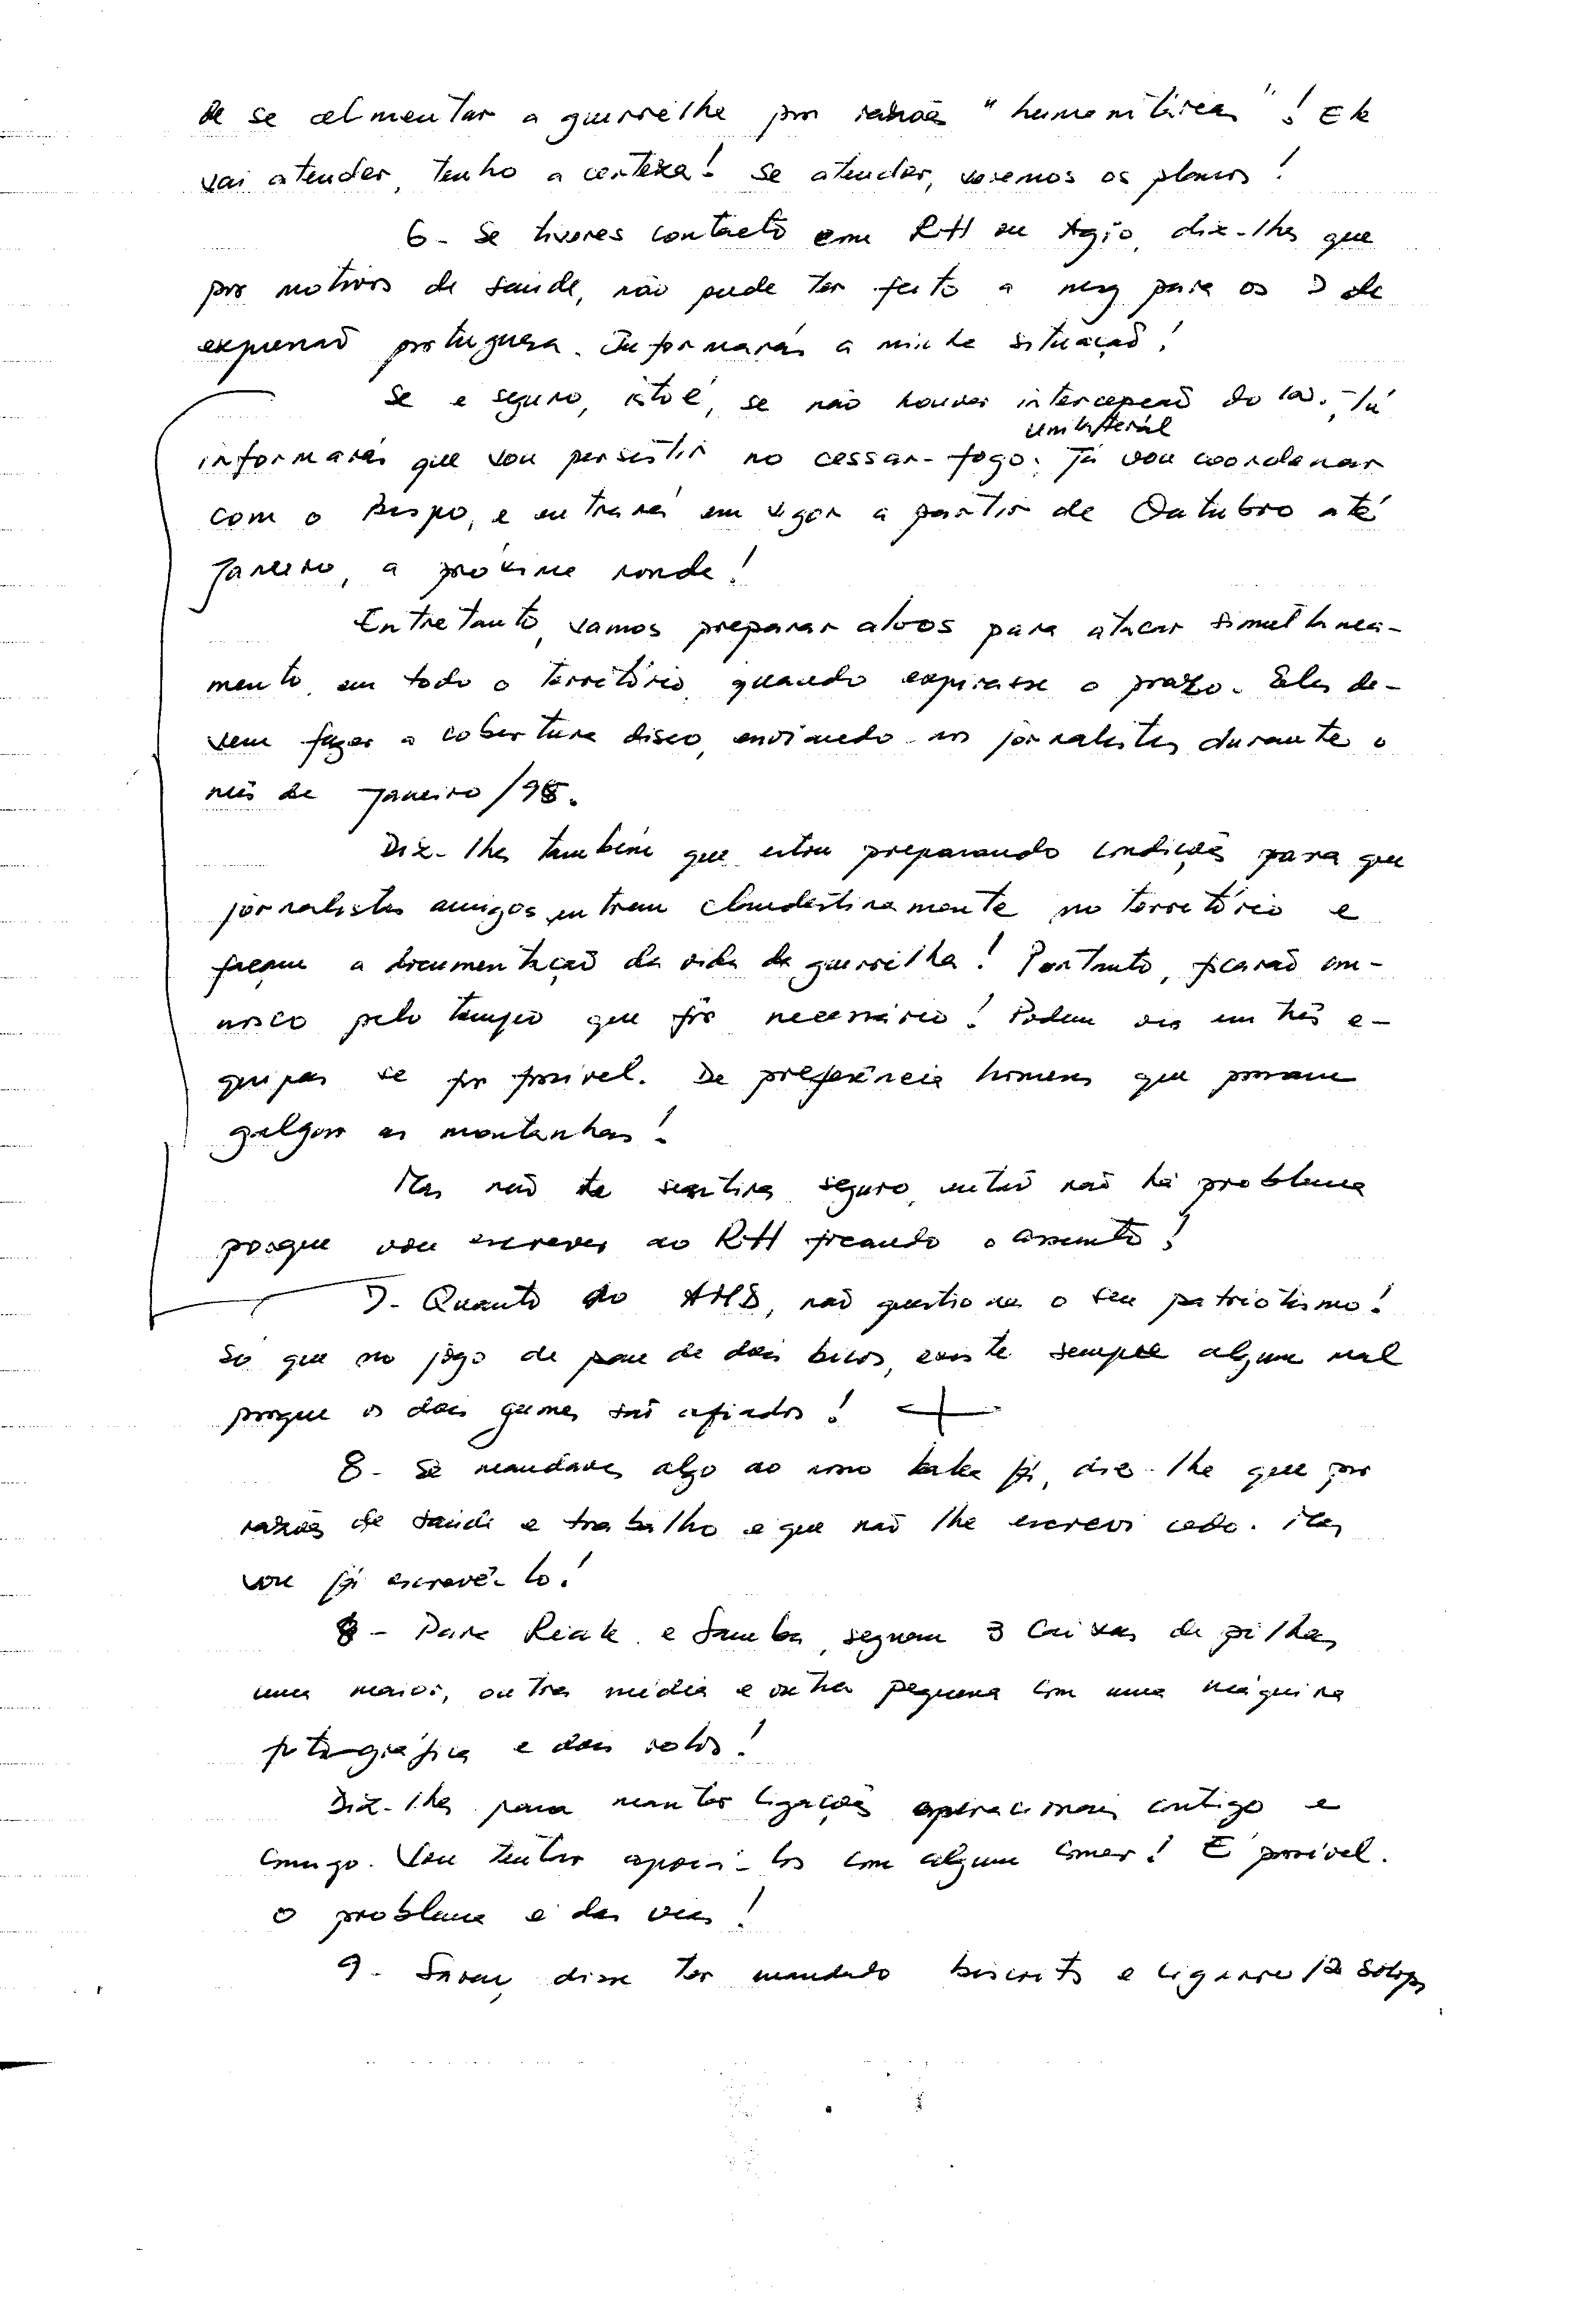 de se alimentar a guerrilha por razões "humanitárias"! Ele
vai atender, tenho a certeza! Se atender, veremos os planos!
6- Se tiveres contacto com RH ou Ágio, diz-lhes que
por motivos de saúde, não pude ter feito a msg para os 7 de
expressão portuguesa. Informarás a minha situação!
Se é seguro, isto é, se não houver intercepção do tu
unilateral
informarás que vou persistir no cessar-fogo. Já vou coordenar
com o Bispo, e entrará em vigor a partir de Outubro até
Janeiro, a próxima ronda!
Entretanto, vamos preparar alvos para atacar simultânea-
mente, em todo o território, quando expirasse o prazo. Eles de-
vem fazer a cobertura disso, enviando-nos jornalistas durante o
mês de Janeiro/98.
Diz-lhes também que estou preparando condições para que
jornalistas amigos entrem clandestinamente no território e
façam a documentação da vida da guerrilha! Portanto, ficarão con-
nosco pelo tempo que fôr necessário! Podem vir em três e-
quipas se for possível. De preferência homens que possam
galgar as montanhas!
Mas não te sentires seguro, então não há problema
porque vou escrever ao RH focando o assunto!
7- Quanto ao AMB, não questiones o seu patriotismo!
Só que no jogo de pau de dois bicos, existe sempre algum mal
porque os dois gumes são afiados!
8- Se mandares algo ao nosso diz-lhe que por
razões de saúde e trabalho é que não lhe escrevi cedo. Mas
vou já escrevê-lo!
8- Para Riak e Samba, seguem 3 caixas de pilhas
uma maior, outra média e outra pequena com uma máquina
fotográfica e dois rolos!
Diz-lhes para manter ligações operacionais contigo e
comigo. Vou tentar apoiá-los com algum comer! É possível.
O problema é das vias!
9- disse ter mandado biscoito e cigarro 12 slops